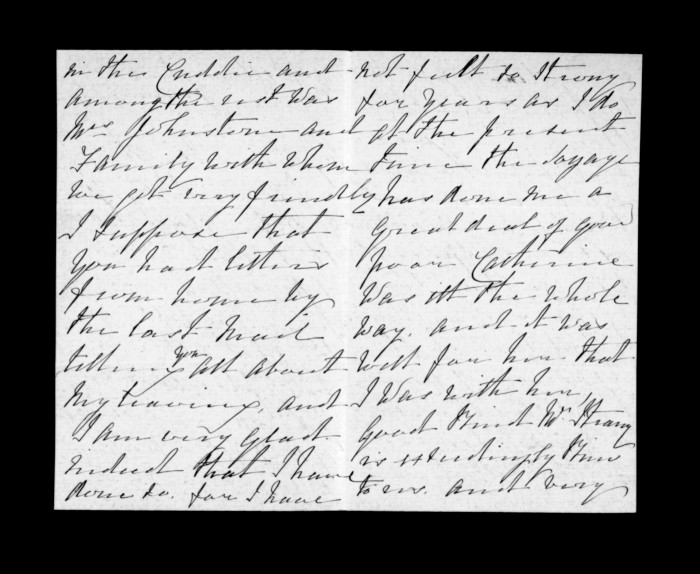 in the Cuddie and
among the rest was
Mrs Johnstone and
Family with whom
we get very friendly
I suppose that
you had letters
from home by
the last Mail
telling you all about
My leaving, and
I am very glad
indeed that I have
done so. for I have
not felt so strong
for years as I do
at the present
time the voyage
has done me a
great deal of good
poor Catherine
was ill the whole
way. and it was
well for her that
I was with her,
Good kind Mr Strang
is exceedingly kind
to us. and very